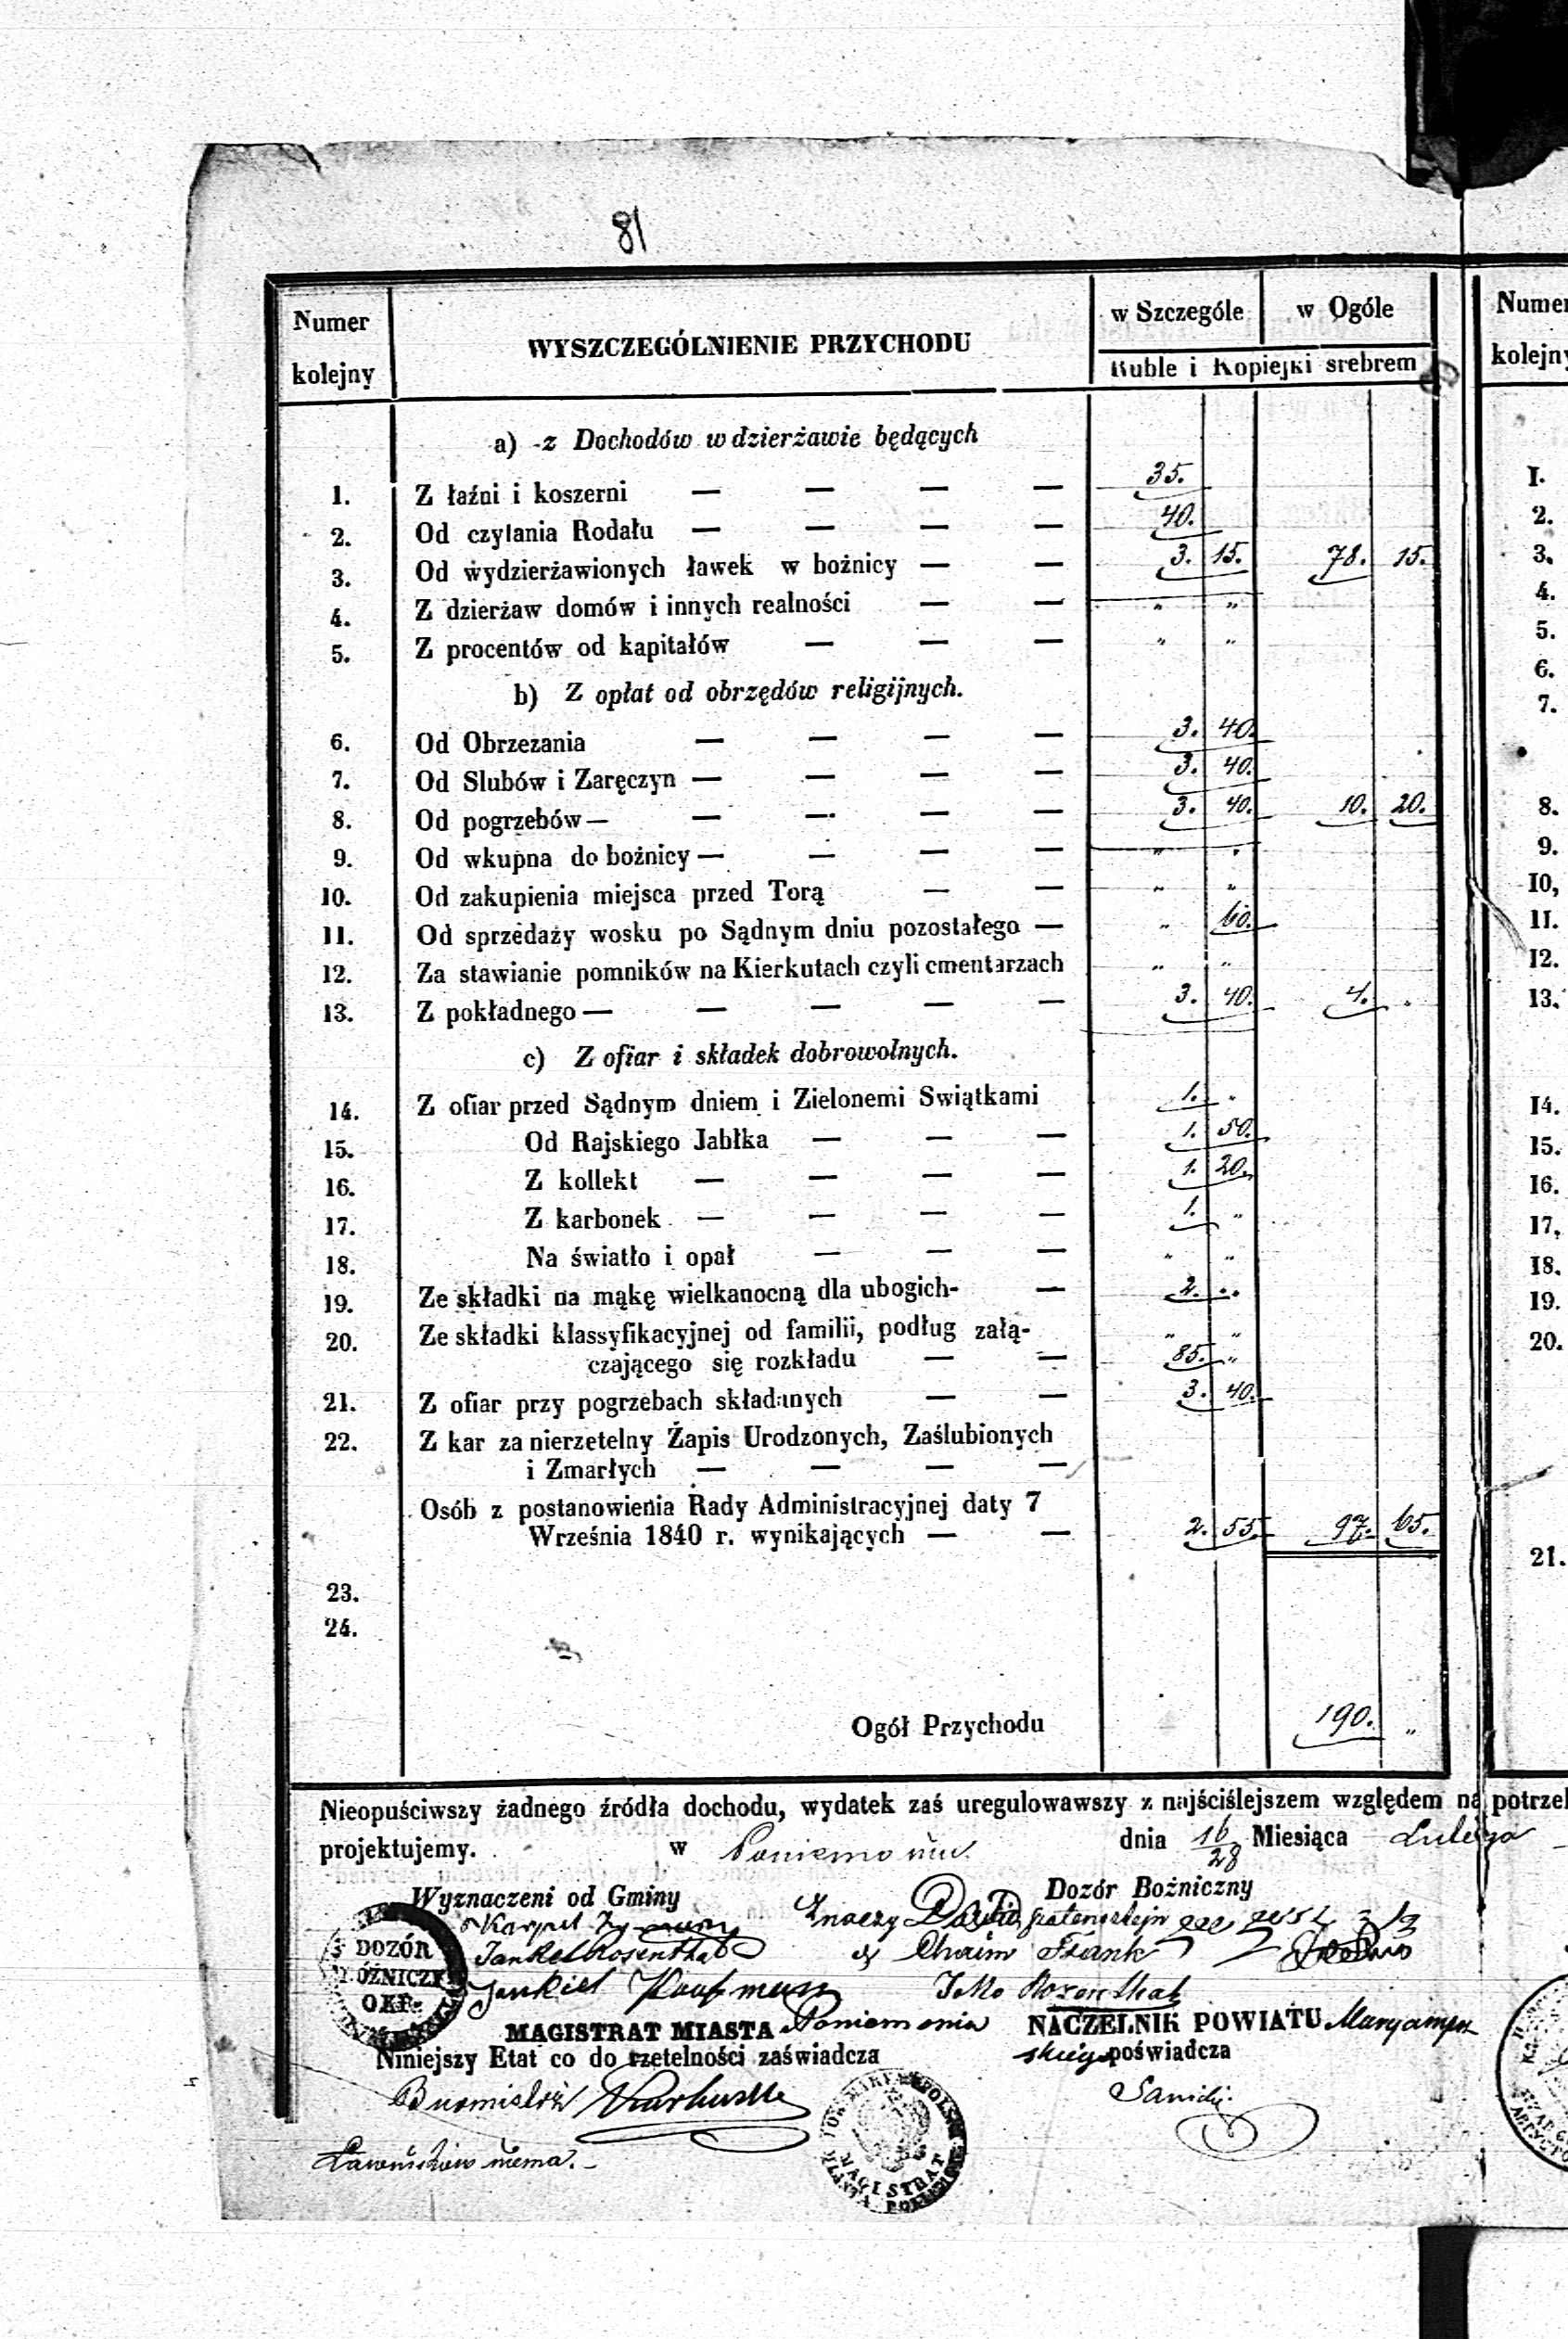 81
Numer kolejny WYSZCZEGÓLNIENIE PRZYCHODU w Szczególe w Ogóle Numer kolejny
Ruble i Kopiejki srebrem
a) -z Dochodów w dzierżawie będących
1. Z łaźni i koszerni — — — — 35. 1.
2. Od czytania Rodału — — — — 40. 2.
3. Od wydzierżawionych ławek w bożnicy — — 3. 15. 78. 15. 3.
4. Z dzierżaw domów i innych realności — — „ „ 4.
5. Z procentów od kapitałów — — — „ „ 5.
6.
b) Z opłat od obrzędów religijnych. 7.
6. Od Obrzezania — — — — 3. 40.
7. Od Slubów i Zaręczyn — — — — 3. 40.
8. Od pogrzebów — — — — — 3. 40. 10. 20. 8.
9. Od wkupna do bożnicy — — — — „ „ 9.
10. Od zakupienia miejsca przed Torą — — „ „ 10,
11. Od sprzedaży wosku po Sądnym dniu pozostałego — „ 60. 11.
12. Za stawianie pomników na Kierkutach czyli cmentarzach „ „ 12.
13. Z pokładnego — — — — — 3. 40. 4. „ 13.
c) Z ofiar i składek dobrowolnych.
14. Z ofiar przed Sądnym dniem i Zielonemi Swiątkami 1. „ 14.
15. Od Rajskiego Jabłka — — — 1. 50. 15.
16. Z kollekt — — — — 1. 20. 16.
17. Z karbonek — — — — 1. „ 17,
18. Na światło i opał — — — „ „ 18.
19. Ze składki na mąkę wielkanocną dla ubogich- — 2. „ 19.
20. Ze składki klassyfikacyjnej od familii, podług załą- „ „ 20.
czającego się rozkładu — — 85. „
21. Z ofiar przy pogrzebach składanych — — 3. 40.
22. Z kar za nierzetelny Zapis Urodzonych, Zaślubionych
i Zmarłych — — — —
Osób z postanowienia Rady Administracyjnej daty 7
Września 1840 r. wynikających — — 2. 55. 97. 65.
21.
23.
24.
Ogół Przychodu 190. „
Nieopuściwszy żadnego źródła dochodu, wydatek zaś uregulowawszy z najściślejszem względem na
projektujemy. w Poniemoniu dnia 16/28 Miesiąca Lutego
Wyznaczeni od Gminy Dozór Bożniczny
Jankel Rosenthal Chaim Frank
Jankiel Kaufman
DOZÓR
BÓŻNICZY
OKR.
MAGISTRAT MIASTA Poniemonia NACZELNIK POWIATU Maryampol
Niniejszy Etat co do rzetelności zaświadcza skiego poświadcza
Burmistrz
Ławników niema.
MAGISTRAT